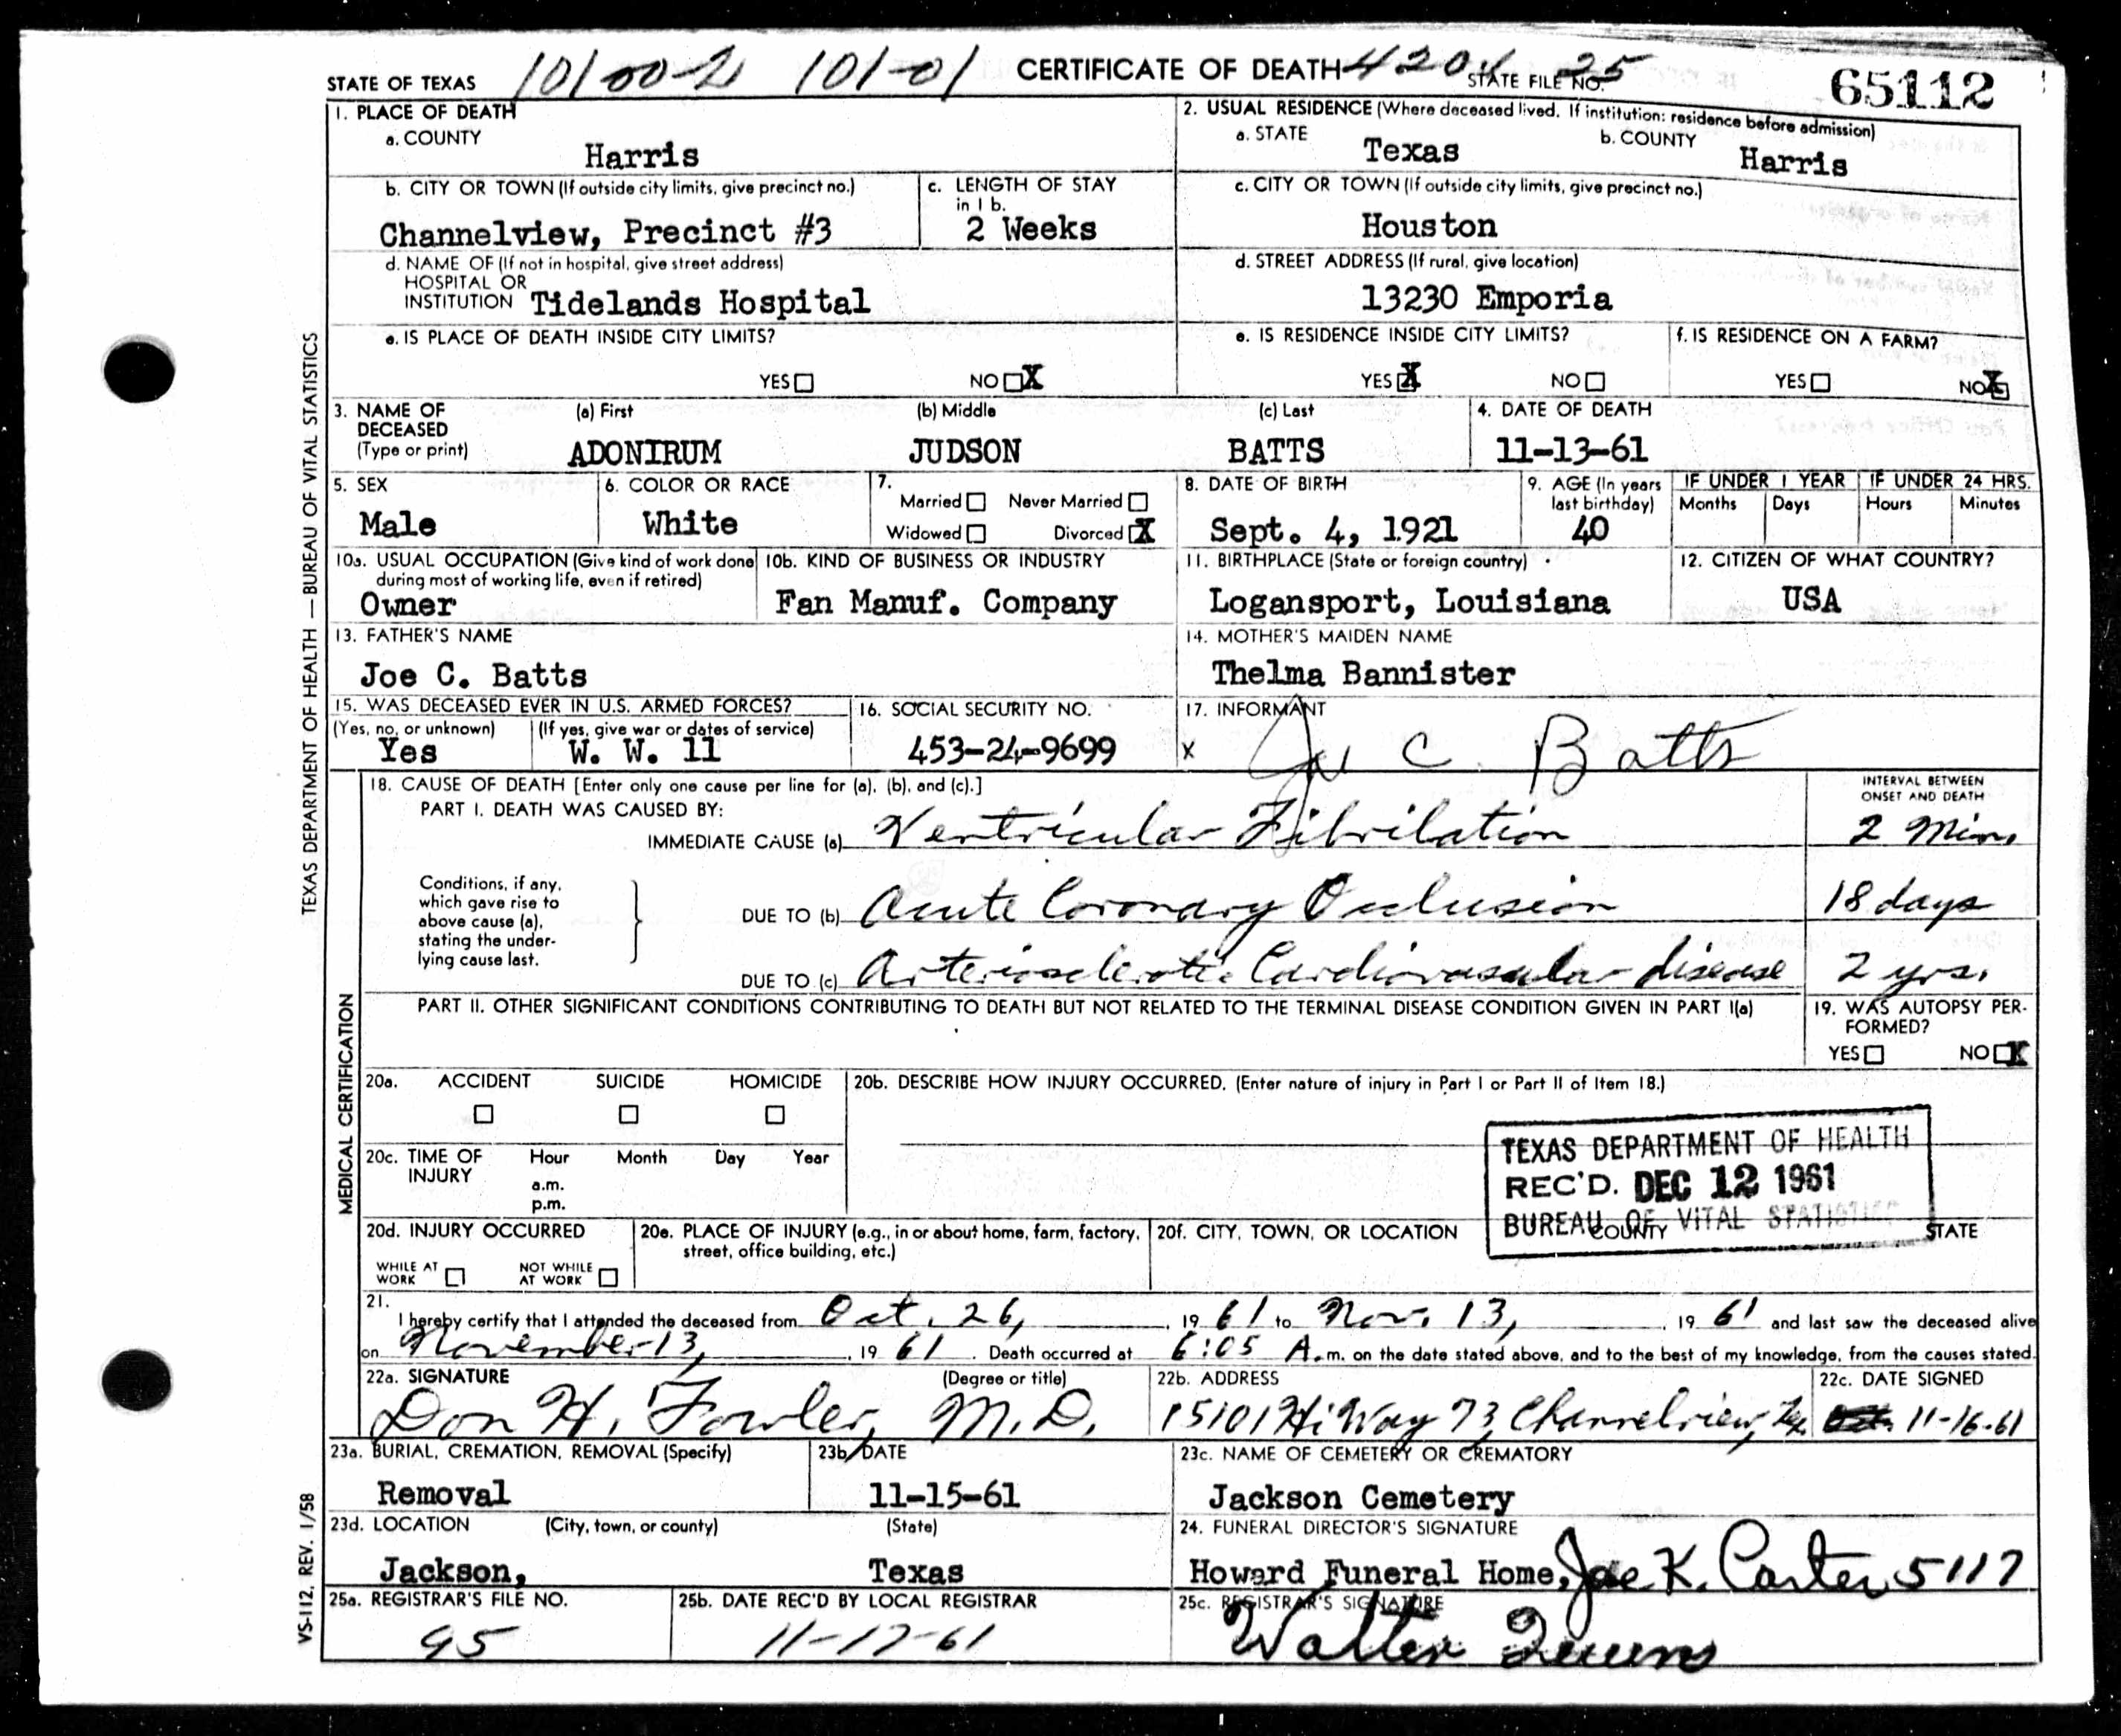 STATE OF TEXAS 10100-2 101-01 CERTIFICATE OF DEATH 4201 STATE FILE NO. 25 65112
1. PLACE OF DEATH
a. COUNTY
Harris
2. USUAL RESIDENCE (Where deceased lived. If institution: residence before admission)
a. STATE b. COUNTY
Texas Harris
b. CITY OR TOWN (If outside city limits, give precinct no.)
Channelview, Precinct #3
c. LENGTH OF STAY
in 1 b.
2 Weeks
c. CITY OR TOWN (If outside city limits, give precinct no.)
Houston
d. NAME OF (If not in hospital, give street address)
HOSPITAL OR
INSTITUTION Tidelands Hospital
d. STREET ADDRESS (If rural, give location)
13230 Emporia
e. IS PLACE OF DEATH INSIDE CITY LIMITS?
YES NO X
e. IS RESIDENCE INSIDE CITY LIMITS?
YES X NO
f. IS RESIDENCE ON A FARM?
YES NO X
3. NAME OF DECEASED
(Type or print)
(a) First (b) Middle (c) Last
ADONIRUM JUDSON BATTS
4. DATE OF DEATH
11-13-61
5. SEX
Male
6. COLOR OR RACE
White
7.
Married Never Married
Widowed Divorced X
8. DATE OF BIRTH
Sept. 4, 1921
9. AGE (In years
last birthday)
40
IF UNDER 1 YEAR IF UNDER 24 HRS.
Months Days Hours Minutes
10a. USUAL OCCUPATION (Give kind of work done
during most of working life, even if retired)
Owner
10b. KIND OF BUSINESS OR INDUSTRY
Fan Manuf. Company
11. BIRTHPLACE (State or foreign country)
Logansport, Louisiana
12. CITIZEN OF WHAT COUNTRY?
USA
13. FATHER'S NAME
Joe C. Batts
14. MOTHER'S MAIDEN NAME
Thelma Bannister
15. WAS DECEASED EVER IN U.S. ARMED FORCES?
(Yes, no, or unknown) (If yes, give war or dates of service)
Yes W. W. 11
16. SOCIAL SECURITY NO.
453-24-9699
17. INFORMANT
x Joe C. Batts
18. CAUSE OF DEATH [Enter only one cause per line for (a), (b), and (c).]
PART I. DEATH WAS CAUSED BY:
INTERVAL BETWEEN
ONSET AND DEATH
IMMEDIATE CAUSE (a) Ventricular Fibrilation 2 Min.
Conditions, if any,
which gave rise to
above cause (a),
stating the under-
lying cause last.
DUE TO (b) Acute Coronary Occlusion 18 days
DUE TO (c) Arteriosclerotic Cardiovascular disease 2 yrs.
PART II. OTHER SIGNIFICANT CONDITIONS CONTRIBUTING TO DEATH BUT NOT RELATED TO THE TERMINAL DISEASE CONDITION GIVEN IN PART I(a)
19. WAS AUTOPSY PER-
FORMED?
YES NO X
20a. ACCIDENT SUICIDE HOMICIDE
20b. DESCRIBE HOW INJURY OCCURRED. (Enter nature of injury in Part I or Part II of Item 18.)
20c. TIME OF
INJURY
Hour Month Day Year
a.m.
p.m.
TEXAS DEPARTMENT OF HEALTH
REC'D. DEC 12 1961
BUREAU OF VITAL STATISTICS
20d. INJURY OCCURRED
WHILE AT
WORK
NOT WHILE
AT WORK
20e. PLACE OF INJURY (e.g., in or about home, farm, factory,
street, office building, etc.)
20f. CITY, TOWN, OR LOCATION COUNTY STATE
21.
I hereby certify that I attended the deceased from Oct. 26, 19 61 to Nov. 13, 19 61 and last saw the deceased alive
on November 13, 19 61. Death occurred at 6:05 A.m. on the date stated above, and to the best of my knowledge, from the causes stated.
22a. SIGNATURE (Degree or title)
Don H. Fowler, M.D.
22b. ADDRESS
15101 HiWay 73, Channelview, Tex.
22c. DATE SIGNED
11-16-61
23a. BURIAL, CREMATION, REMOVAL (Specify)
Removal
23b. DATE
11-15-61
23c. NAME OF CEMETERY OR CREMATORY
Jackson Cemetery
23d. LOCATION (City, town, or county) (State)
Jackson, Texas
24. FUNERAL DIRECTOR'S SIGNATURE
Howard Funeral Home, Joe K. Carter 5117
25a. REGISTRAR'S FILE NO.
95
25b. DATE REC'D BY LOCAL REGISTRAR
11-17-61
25c. REGISTRAR'S SIGNATURE
Walter
TEXAS DEPARTMENT OF HEALTH — BUREAU OF VITAL STATISTICS
MEDICAL CERTIFICATION
VS-112, REV. 1/58